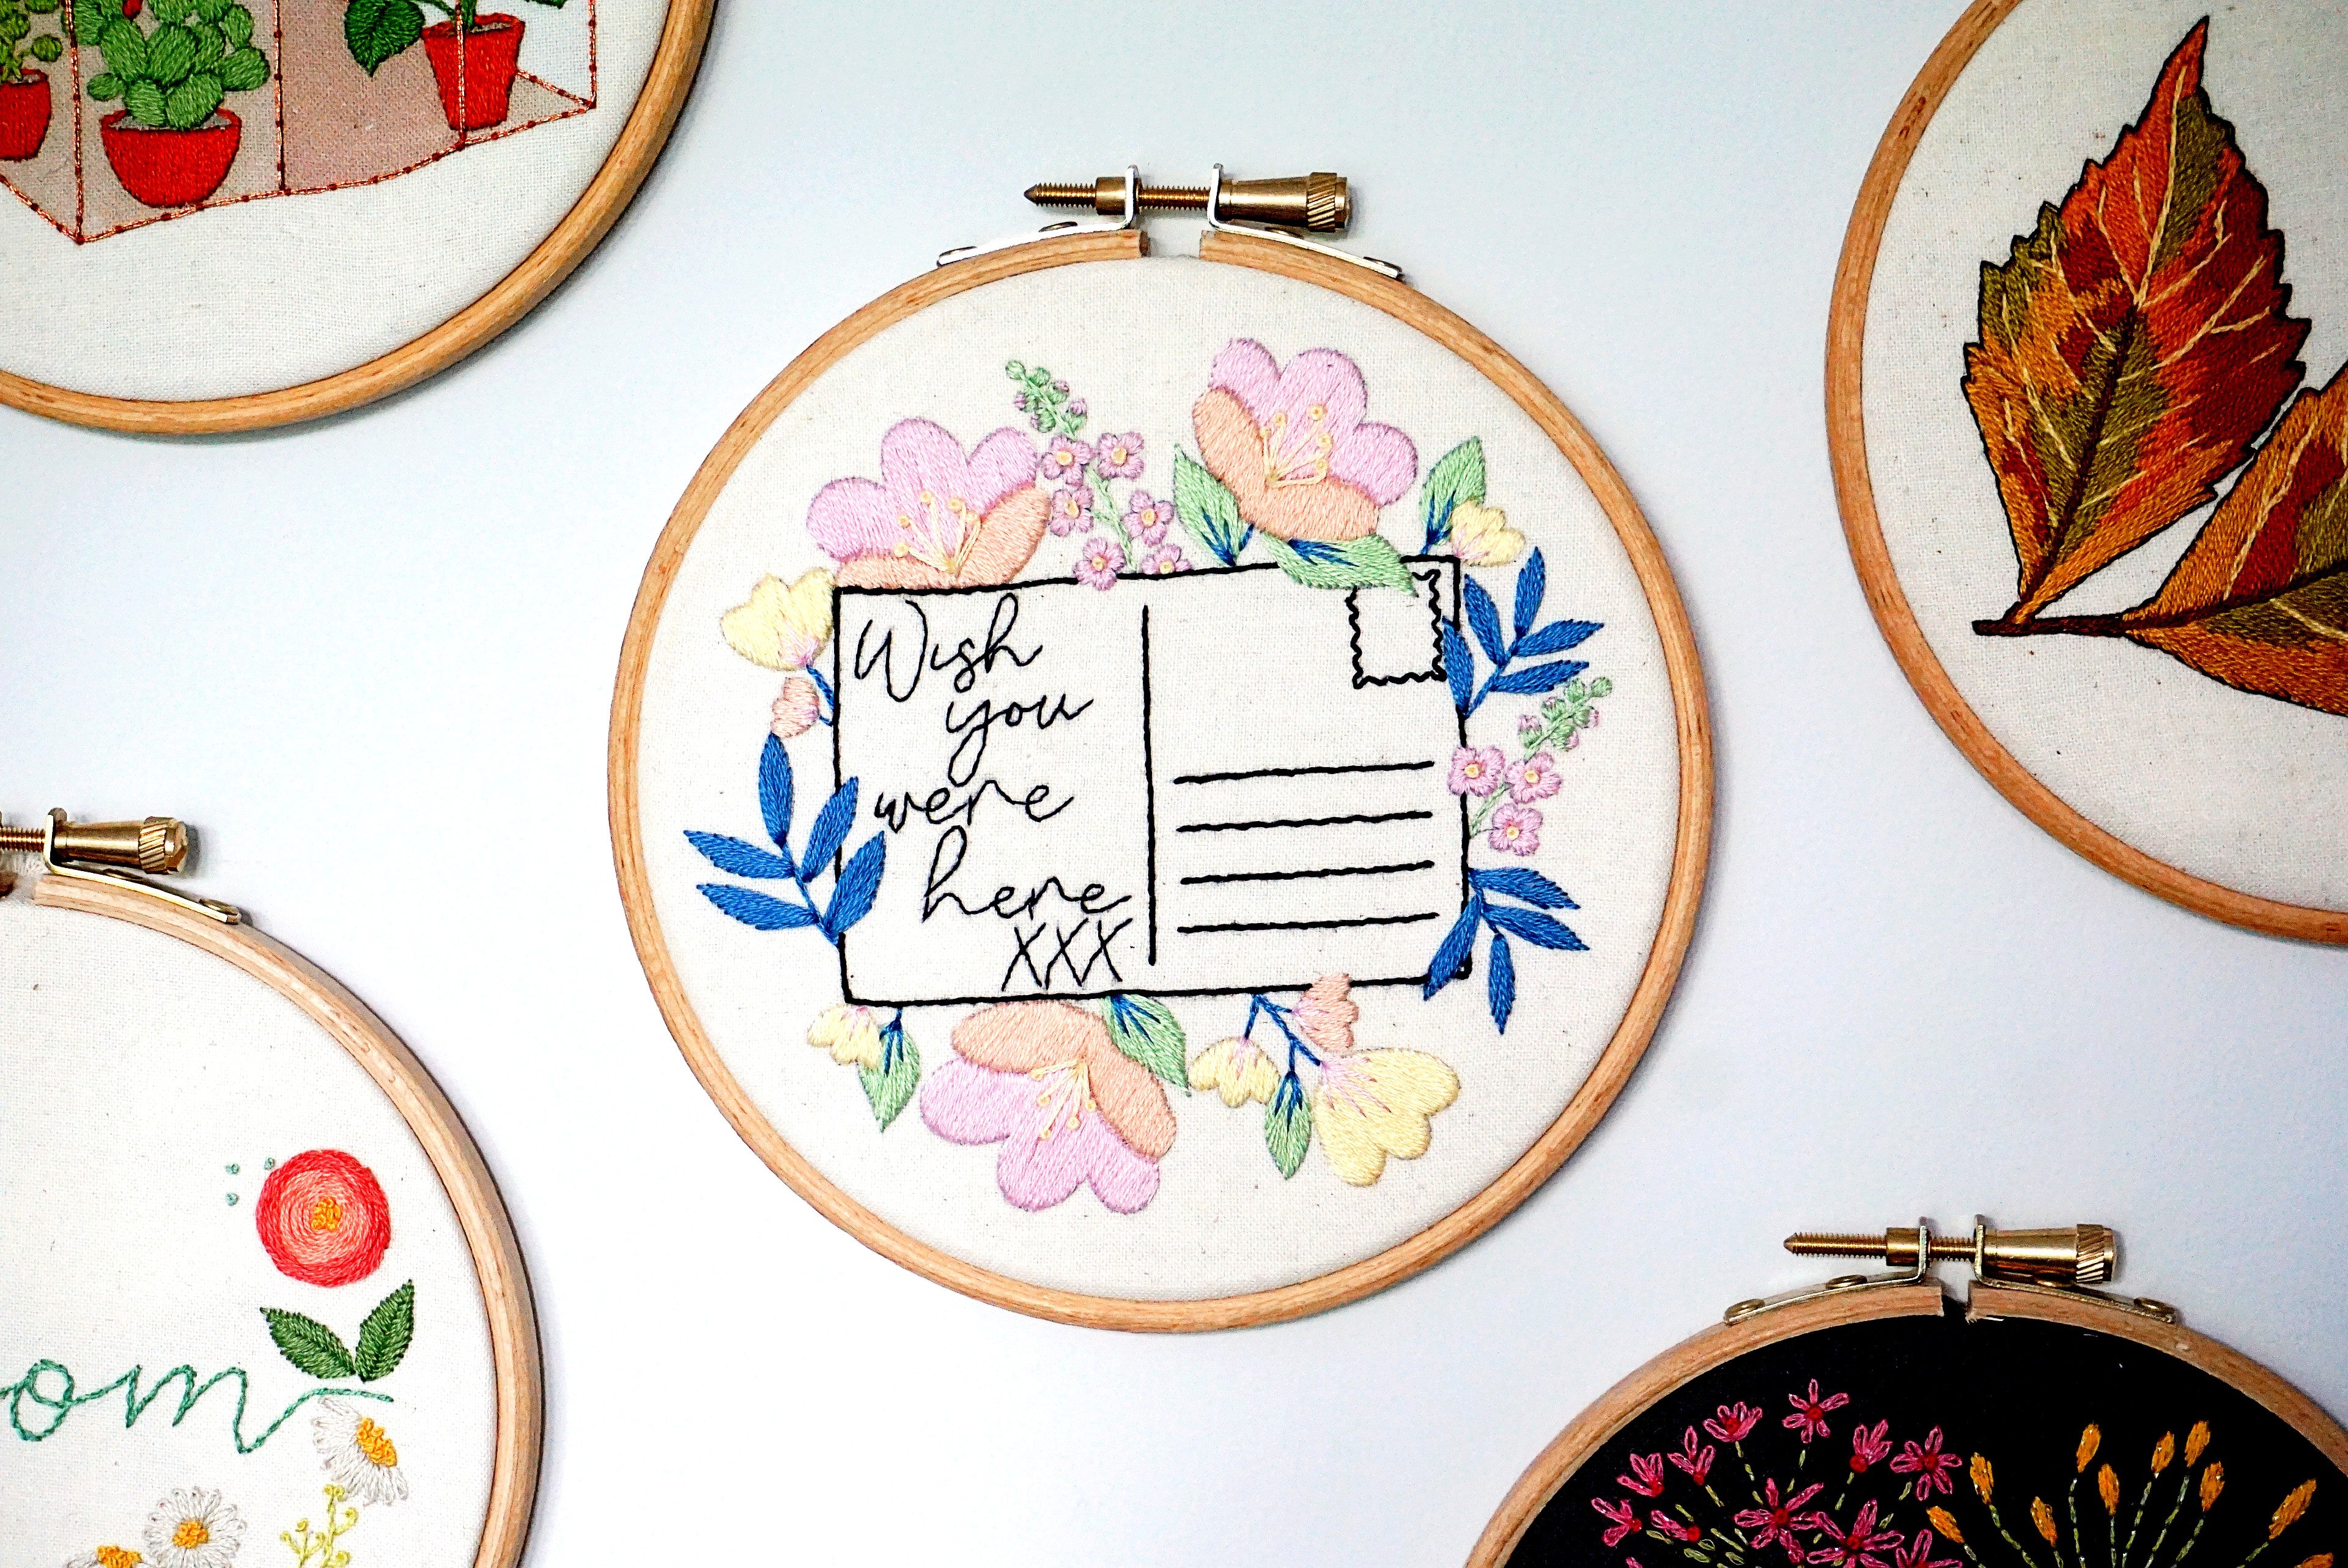 Wish
you
were
here
XXX
om